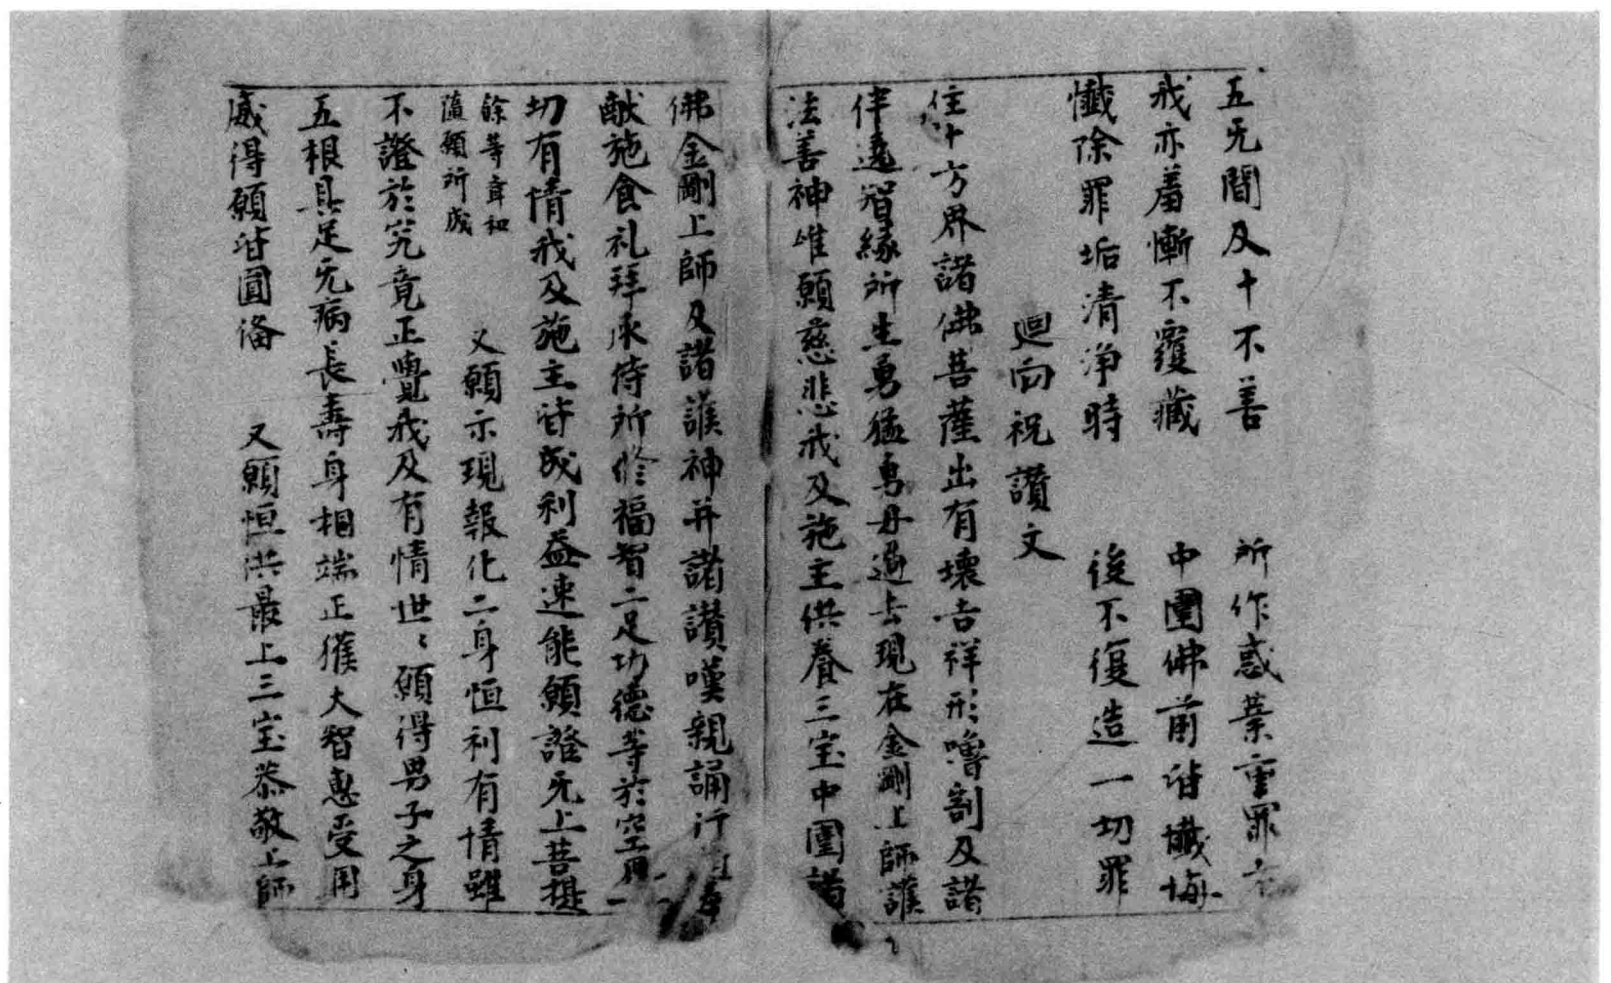 五无間及十不善　所作惑業重罪
我亦羞慚不覆藏　中圍佛前皆懺悔
懺除罪垢清淨時　後不復造一切罪
迴向祝讚文
住十方界諸佛菩薩出有壞吉祥形嚕割及諸
伴遶智緣所生勇猛勇母過去現在金剛上師護
法善神唯願慈悲我及施主供養三宝中圍諸
佛金剛上師及諸護神并諸讚嘆親誦行
献施食礼拜承侍所修福智二足功德等於空界一
切有情我及施主皆成利益速能願證无上菩提
餘等
隨願所成
又願示現報化二身恒利有情雖
不證於究竟正覺我及有情世〻願得男子之身
五根具足无病長壽身相端正獲大智惠受用
威得願皆圓俻　又願恒洪最上三宝恭敬上師